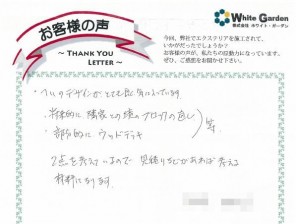 お客様の声
～ THANK YOU LETTER ～
White Garden
株式会社 ホワイト・ガーデン
今回、弊社でエクステリアを施工されて、
いかがだったでしょうか？
お客様の声が、私たちの原動力になっています。
ぜひ、ご感想をお聞かせ下さい。
・ デザインがとても気に入っています
・将来的に 隣家との境のブロックの直し
・部分的に ウッドデッキ
等
2点を考えているので 見積りなどがあれば 考える
材料になります。